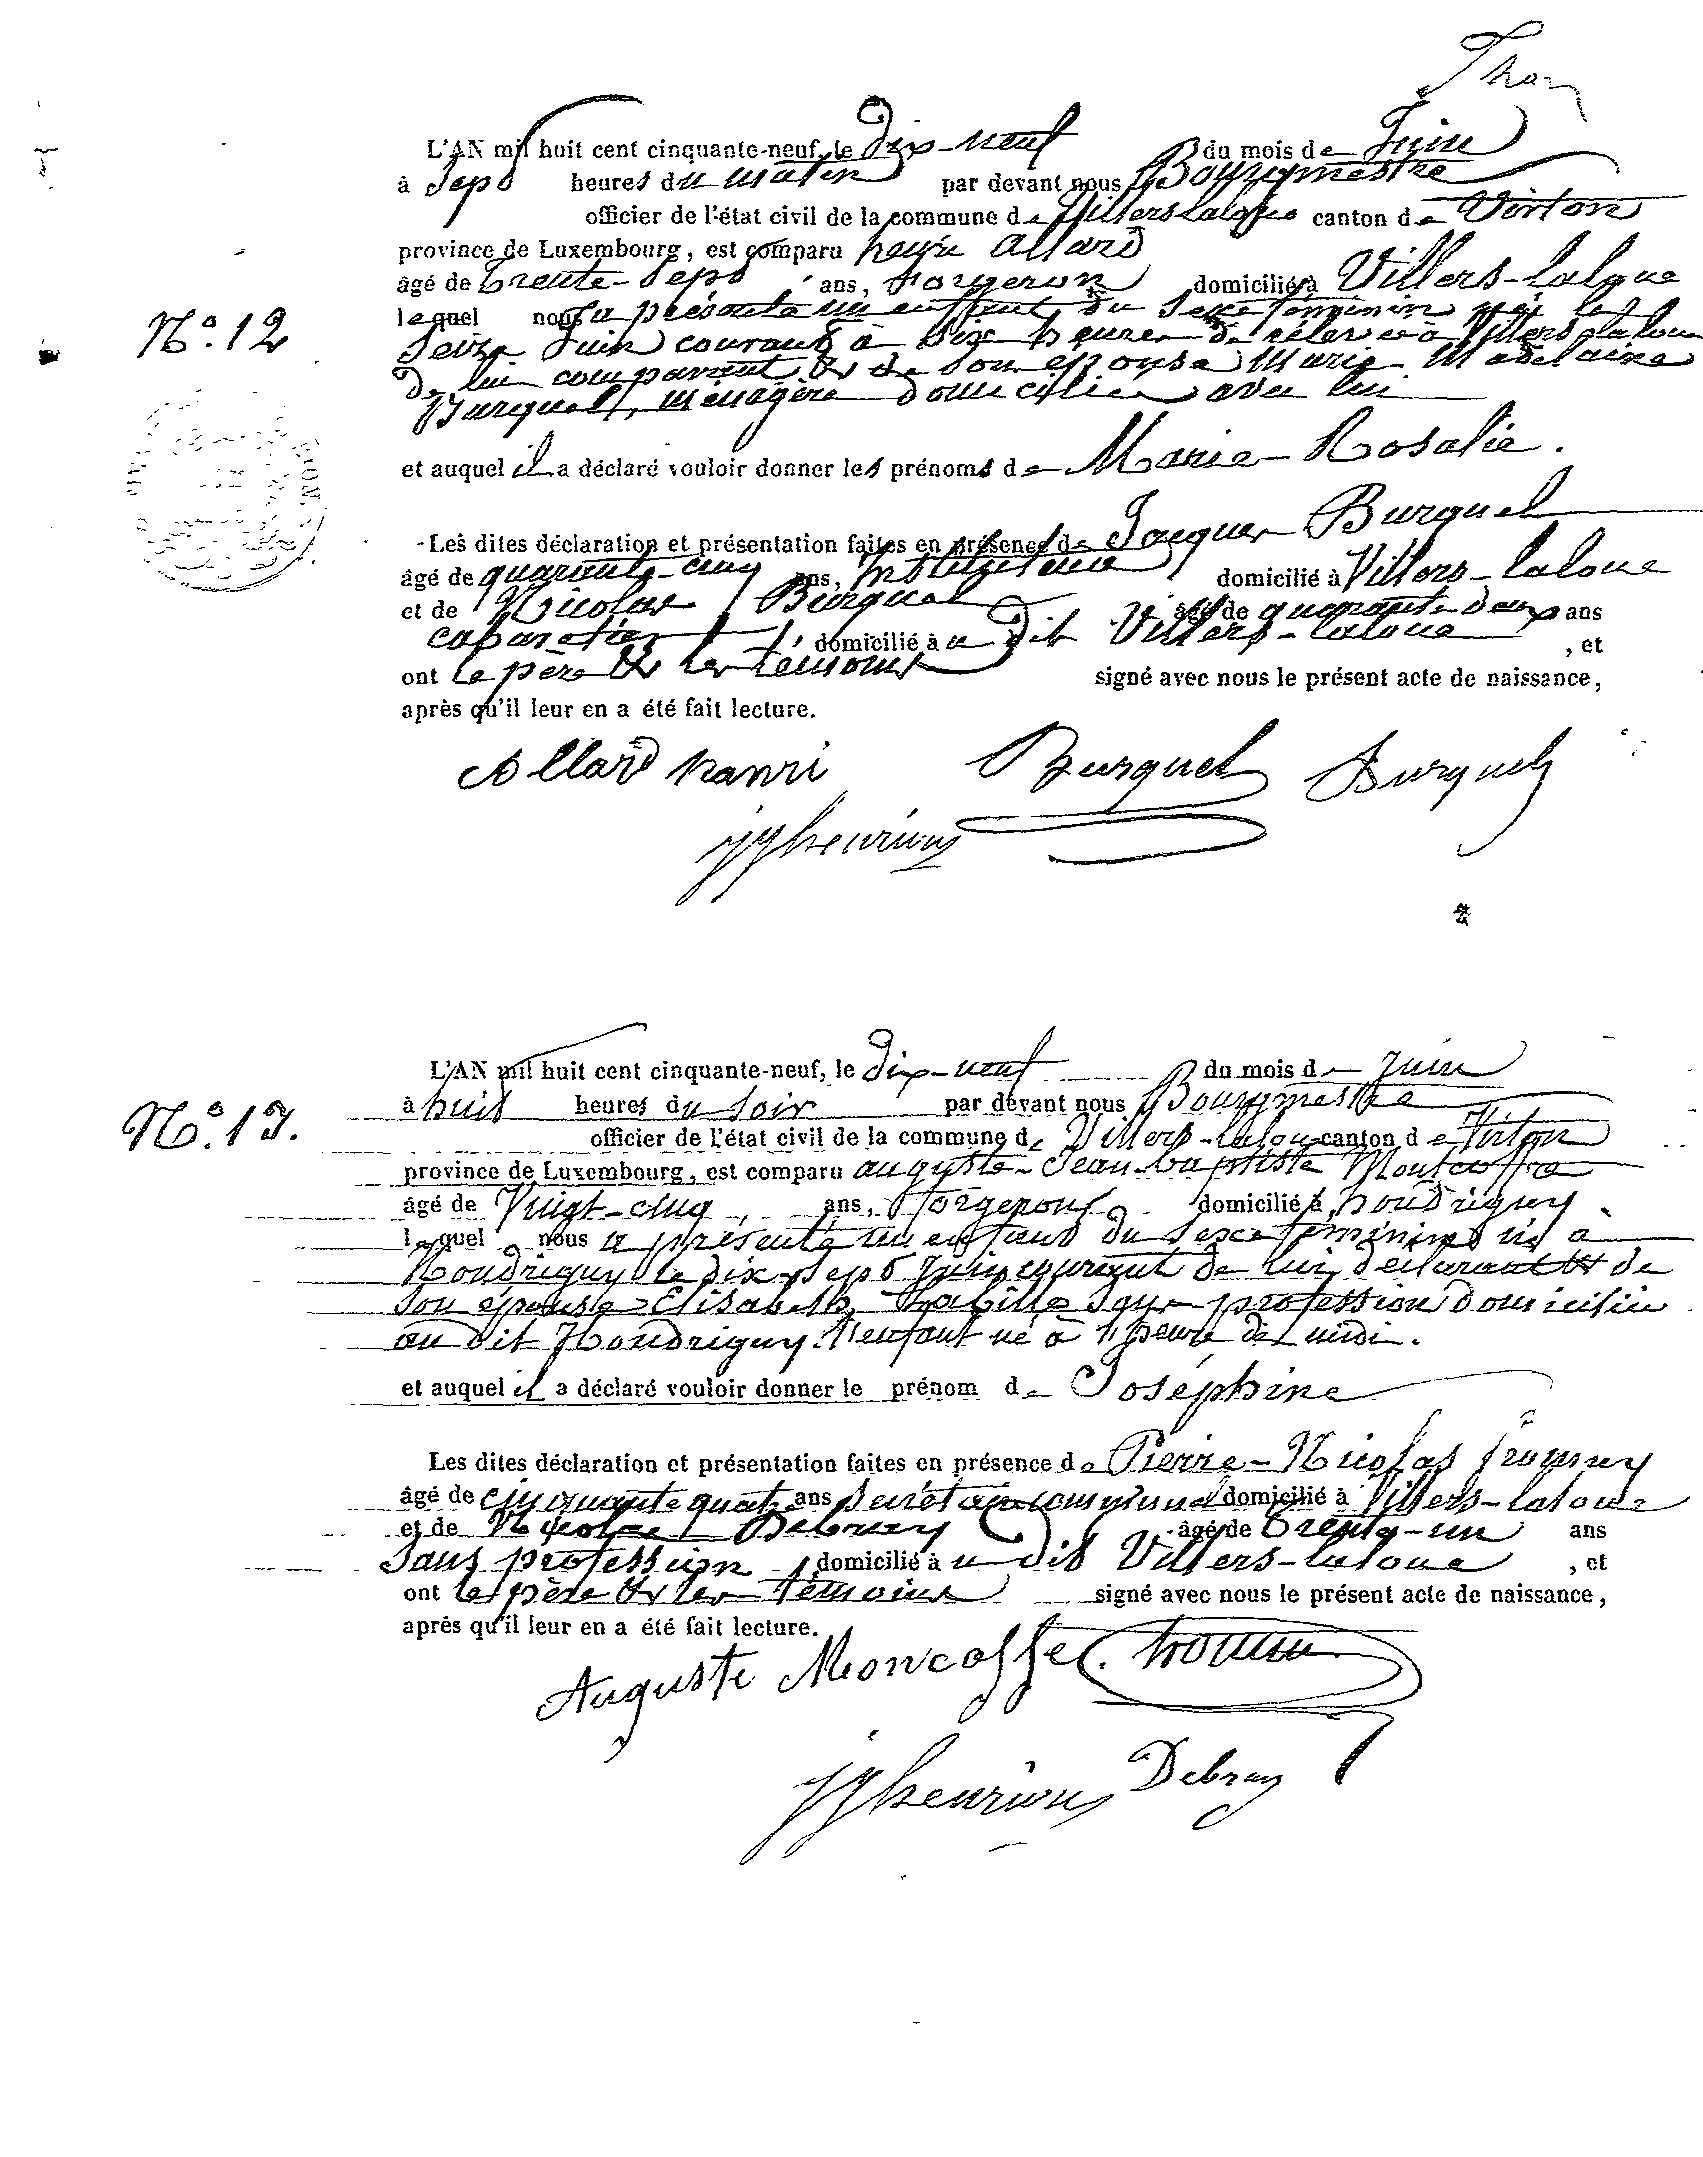 L'AN mil huit cent cinquante-neuf, le Dix-neuf du mois de Juin
à Sept heures du matin par devant nous Bourgmestre
officier de l'état civil de la commune de Villers-laloue canton de Virton
province de Luxembourg, est comparu henri Allard
âgé de Trente-Sept ans, Forgeron domicilié à Villers-laloue
N° 12
lequel nous a présenté un enfant du Sexe féminin né le
Seize Juin courant à Six heures de à Villers-laloue
De lui comparant & de Son épouse Marie Madelaine
Burquel, ménagère domiciliée avec lui
et auquel il a déclaré vouloir donner les prénoms de Marie-Rosalie.
Les dites déclaration et présentation faites en présence de Jacques Burquel
âgé de quarante-cinq ans, Instituteur domicilié à Villers-laloue
et de Nicolas Burquel âgé de quarante-deux ans
cabaretier domicilié à u Dit Villers-laloue, et
ont le père & les témoins signé avec nous le présent acte de naissance,
après qu'il leur en a été fait lecture.
Allard hanri Burquel Burquel
L'AN mil huit cent cinquante-neuf, le Dix-neuf du mois de Juin
N° 13.
à huit heures du Soir par devant nous Bourgmestre
officier de l'état civil de la commune de Villers-laloue canton de Virton
province de Luxembourg, est comparu auguste-Jean-baptiste Montcoffre
âgé de Vingt-cinq ans, Forgeron domicilié à houdrigny
lequel nous a présenté un enfant du Sexe féminin né à
Houdrigny le dix-Sept Juin courant de lui déclarant & de
Son épouse Elisabeth Sans profession domiciliée
au dit Houdrigny. l'enfant né à 1 heure de midi.
et auquel il a déclaré vouloir donner le prénom de Joséphine
Les dites déclaration et présentation faites en présence de Pierre-Nicolas
âgé de cinquante quatre ans Secrétaire communal domicilié à Villers-laloue
et de Nicolas Debruxy âgé de Trente-un ans
Sans profession domicilié à u dit Villers-laloue, et
ont le père & les témoins signé avec nous le présent acte de naissance,
après qu'il leur en a été fait lecture.
Auguste Moncoffe.